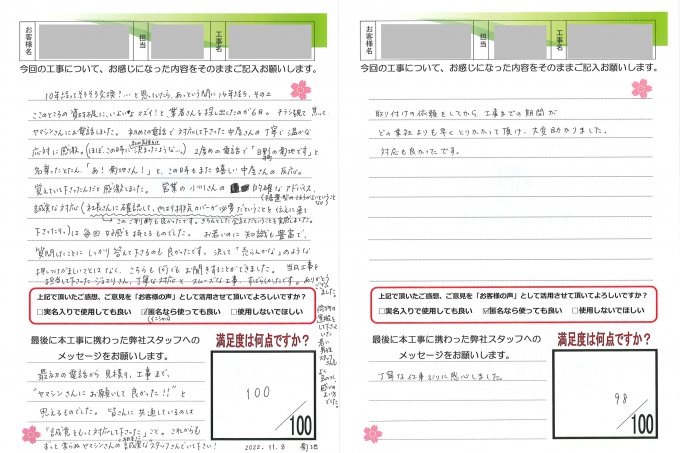 お客様名
担当
工事名
今回の工事について、お感じになった内容をそのままご記入お願いします。
10年経ってそろそろ交換?…と思っていたら、あっという間に14年経ち、その上
ここのところの資材不足に、いよいよマズイ!と、業者さんを探し出したのが6月。チラシを見て焦って
ヤマシンさんにお電話しました。初めての電話で対応して下さった中居さんの丁寧で温かな
応対に感激。(ほぼ、この時に決まったような…。)2度めの電話で「日野の菊地です」と
名乗ったとたん「あ!菊地さん!」と、この時もまた嬉しい中居さんの反応。
覚えていて下さったんだと感激しました。営業の小川さんの的確なアドバイス、
誠実な対応(社長さんに確認して、やはり排気カバーが必要だということを伝えに来て
下さったり。)は毎回好感を持てるものでした。お若いのに知識も豊富で、
質問したことにしっかり答えて下さるのも良かったです。決して「売らんかな」のような
押しつけがましいことはなく、こちらも何でもお聞きすることができました。当日工事を
担当して下さった
丁寧な対応とスムーズな工事、すばらしかったです。ありがとうございました。
上記で頂いたご感想、ご意見を「お客様の声」として活用させて頂いてよろしいですか?
□実名入りで使用しても良い ☑匿名なら使っても良い □使用しないでほしい
(イニシャル)
最後に本工事に携わった弊社スタッフへの
メッセージをお願いします。
最初の電話から見積り、工事まで、
"ヤマシンさんにお願いして良かった!!"と
思えるものでした。皆さんに共通しているのは
「誠意をもって対応して下さった」こと。これからも
ずっと変らぬヤマシンさんの誠実なスタッフさんでいて下さい!
満足度は何点ですか?
100
/100
2022.11.8 菊地
お客様名
担当
工事名
今回の工事について、お感じになった内容をそのままご記入お願いします。
取り付けの依頼をしてから工事までの期間が
どの業社よりも早くとりかかって頂け、大変助かりました。
対応も良かったです。
上記で頂いたご感想、ご意見を「お客様の声」として活用させて頂いてよろしいですか?
□実名入りで使用しても良い ☑匿名なら使っても良い □使用しないでほしい
最後に本工事に携わった弊社スタッフへの
メッセージをお願いします。
丁寧な仕事ぶりに感心しました。
満足度は何点ですか?
98
/100